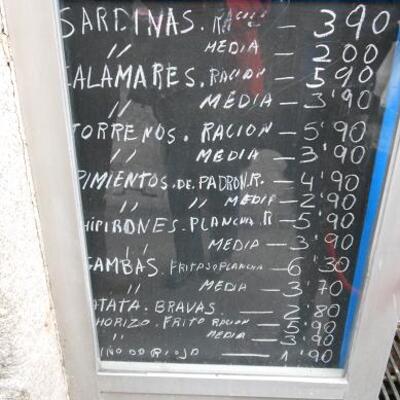 SARDINAS. RACION — 3'90
// MEDIA — 200
CALAMARES. RACION — 5'90
// MEDIA — 3'90
TORRENOS. RACION — 5'90
// MEDIA — 3'90
PIMIENTOS. DE. PADRON. R. — 4'90
// // MEDIA — 2'90
CHIPIRONES. PLANCHA. R — 5'90
// MEDIA — 3'90
GAMBAS. FRITAS O PLANCHA — 6'30
// MEDIA — 3'70
PATATA. BRAVAS. — 2'80
CHORIZO. FRITO RACION — 5'90
// MEDIA — 3'90
VIÑO DO RIOJA — 1'90